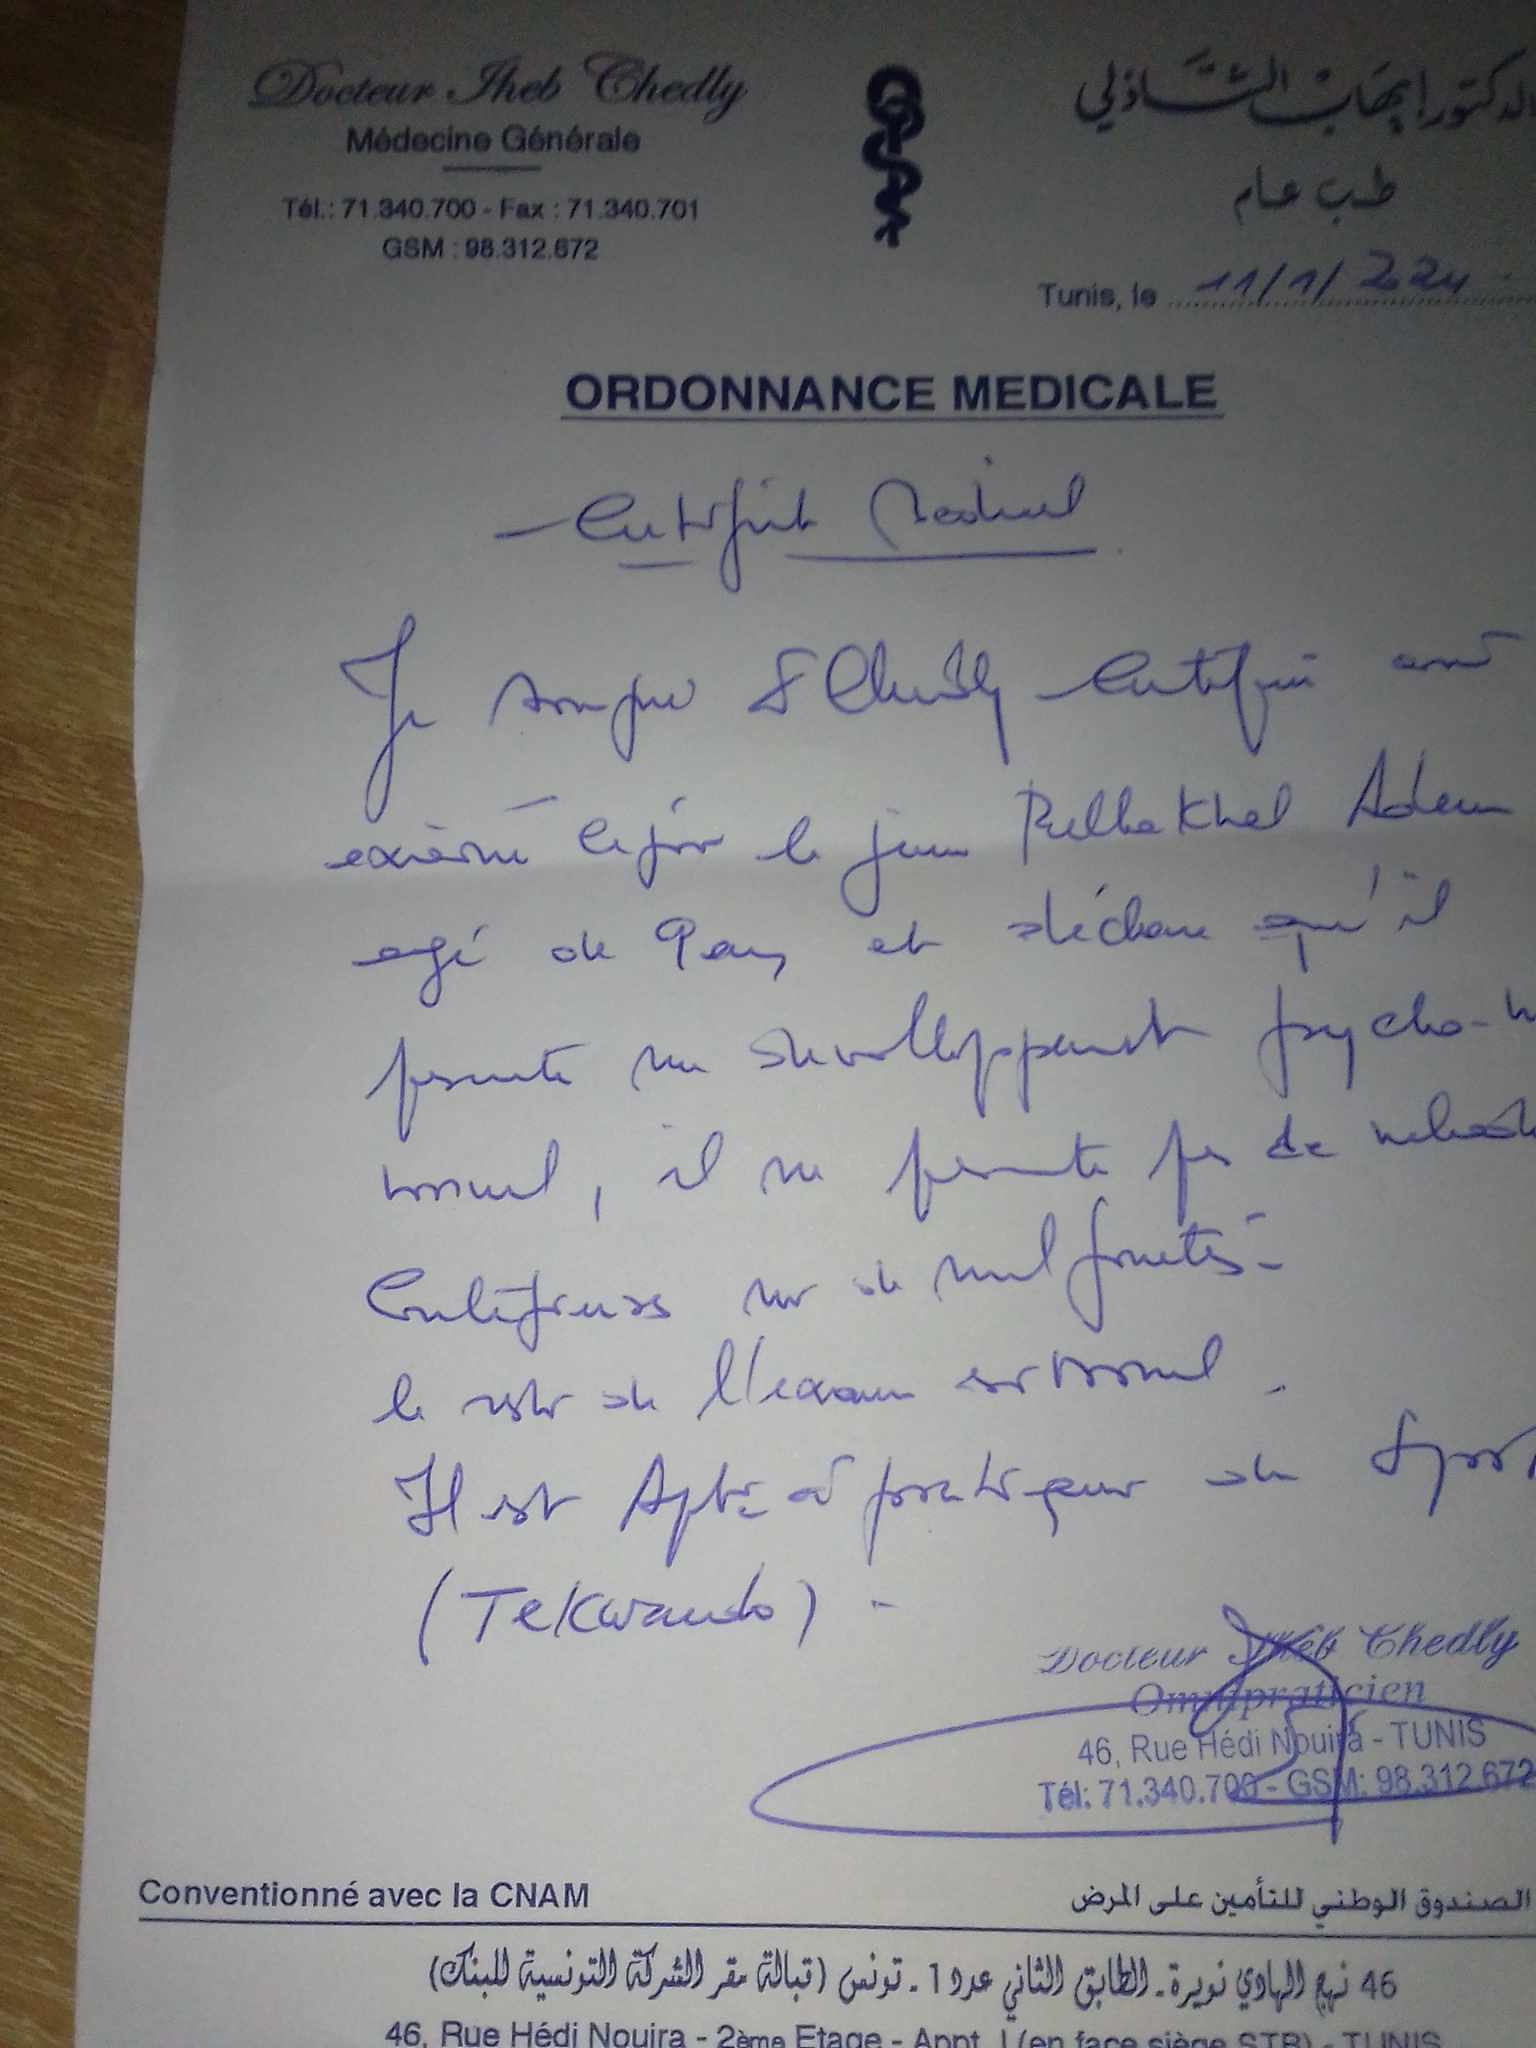 Docteur Iheb Chedly
Médecine Générale
Tél.: 71.340.700 - Fax : 71.340.701
GSM : 98.312.672
الدكتور إيهاب الشاذلي
طب عام
Tunis, le 11/1/2024
ORDONNANCE MEDICALE
Certificat Medical
Je soussigné Dr Chedly Certifie avoir
examiné ce jour le jeune Adem
agé de 9 ans et déclare qu'il
presente un developpement psycho-m
normal, il ne presente pas de maladie
Contagieuses ni de malformations
le reste de l'examen est normal.
Il est Apte à pratiquer du Sport
(Tekwando).
Docteur Iheb Chedly
Omnipraticien
46, Rue Hédi Nouira - TUNIS
Tél: 71.340.700 - GSM: 98.312.672
Conventionné avec la CNAM
الصندوق الوطني للتأمين على المرض
46 نهج الهادي نويرة ـ الطابق الثاني عدد 1 ـ تونس (قبالة مقر الشركة التونسية للبنك)
46, Rue Hédi Nouira - 2ème Etage - Appt. I (en face siège STB) - TUNIS